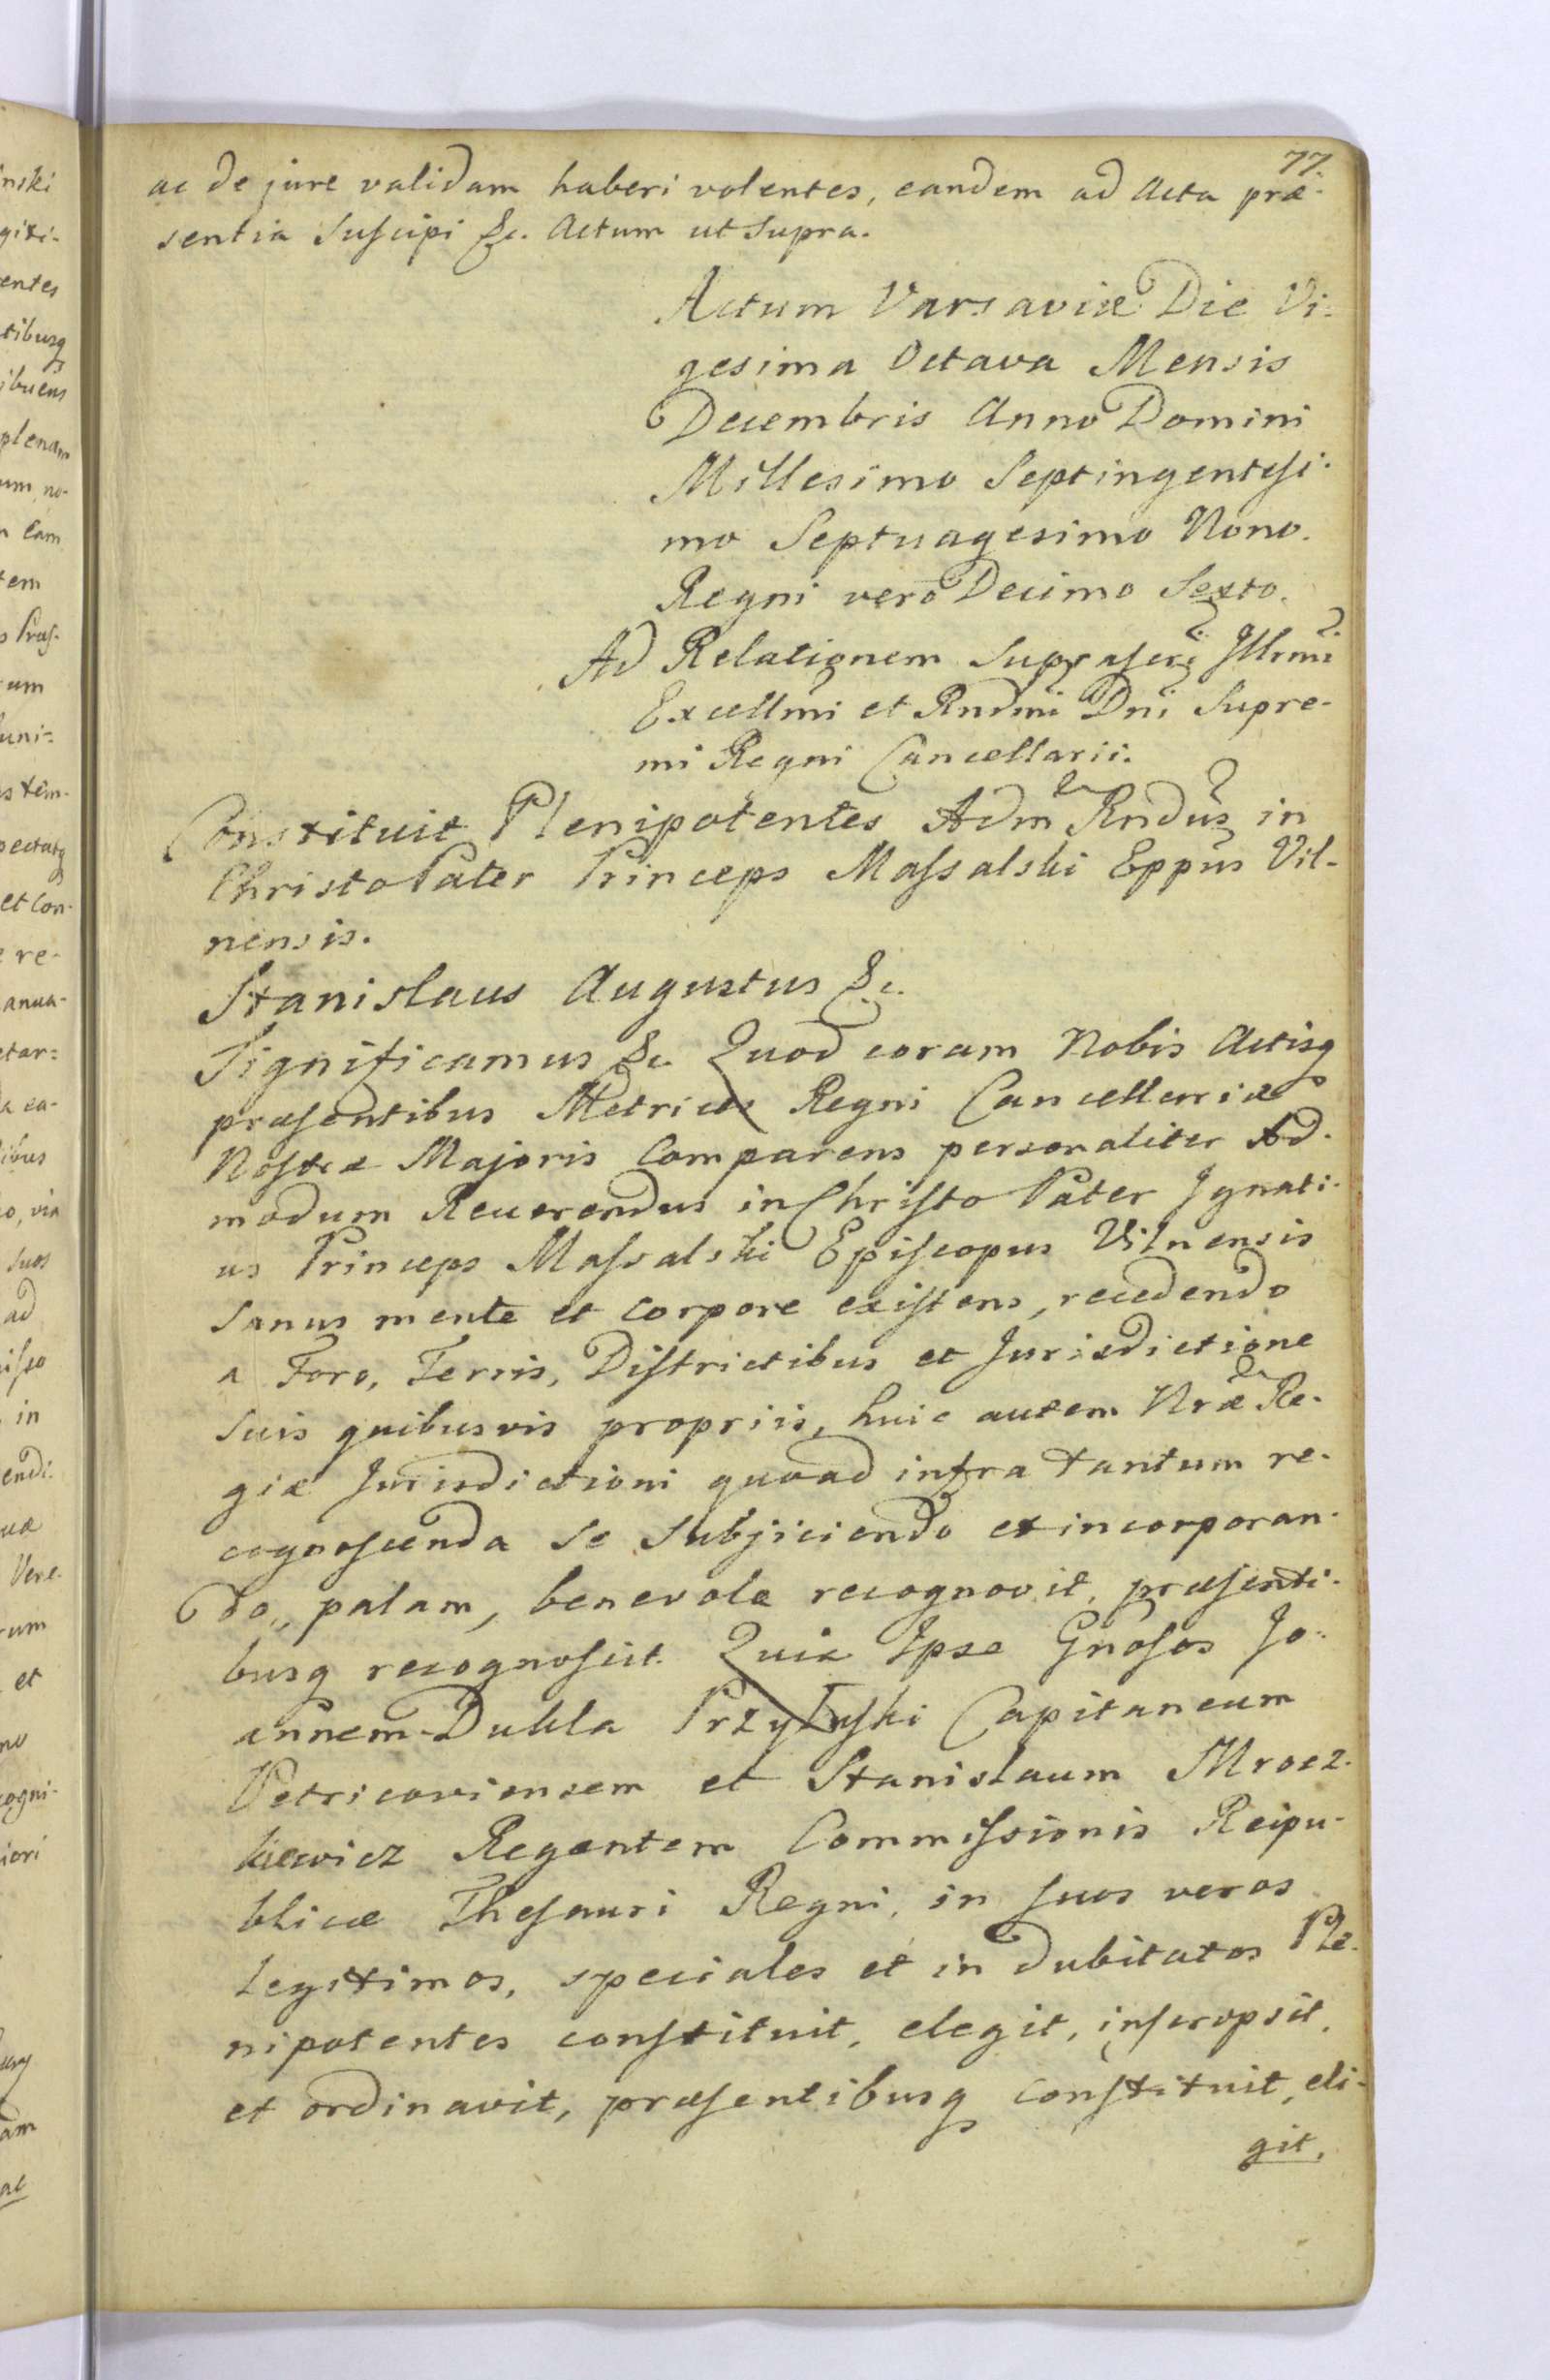 77.
ac de jure validam haberi volentes, eandem ad Acta præ-
sentia suscipi &c. Actum ut supra.
Actum Varsaviæ Die Vi-
gesima Octava Mensis
Decembris Anno Domini
Millesimo Septingentesi-
mo Septuagesimo Nono.
Regni vero Decimo Sexto.
Ad Relationem suprascri Illrmi
Excellmi et Rndmi Dni Supre-
mi Regni Cancellarii.
Constituit Plenipotentes Adm Rndus in
Christo Pater Princeps Massalski Eppus Vil-
nensis.
Stanislaus Augustus &c.
Significamus &c. Quod coram Nobis Actisq
præsentibus Metrices Regni Cancellariæ
Nostræ Majoris Comparens personaliter Ad-
modum Reverendus in Christo Pater Ignati-
us Princeps Massalski Episcopus Vilnensis
sanus mente et corpore existens, recedendo
a Foro, Terris, Districtibus et Jurisdictione
suis quibusvis propriis, huic autem Nræ Re-
giæ Jurisdictioni quoad infra tantum re-
cognoscenda se subjiciendo et incorporan-
do, palam, benevole recognovit, præsenti-
busq recognoscit. Quia Ipse Gnosos Jo-
annem Dukla Przyłuski Capitaneum
Petricoviensem et Stanislaum Mrocz-
kiewicz Regentem Commissionis Reipu-
blicæ Thesauri Regni, in suos veros
legitimos, speciales et indubitatos Ple-
nipotentes constituit, elegit, inscropsit,
et ordinavit, præsentibusq constituit, eli-
git,